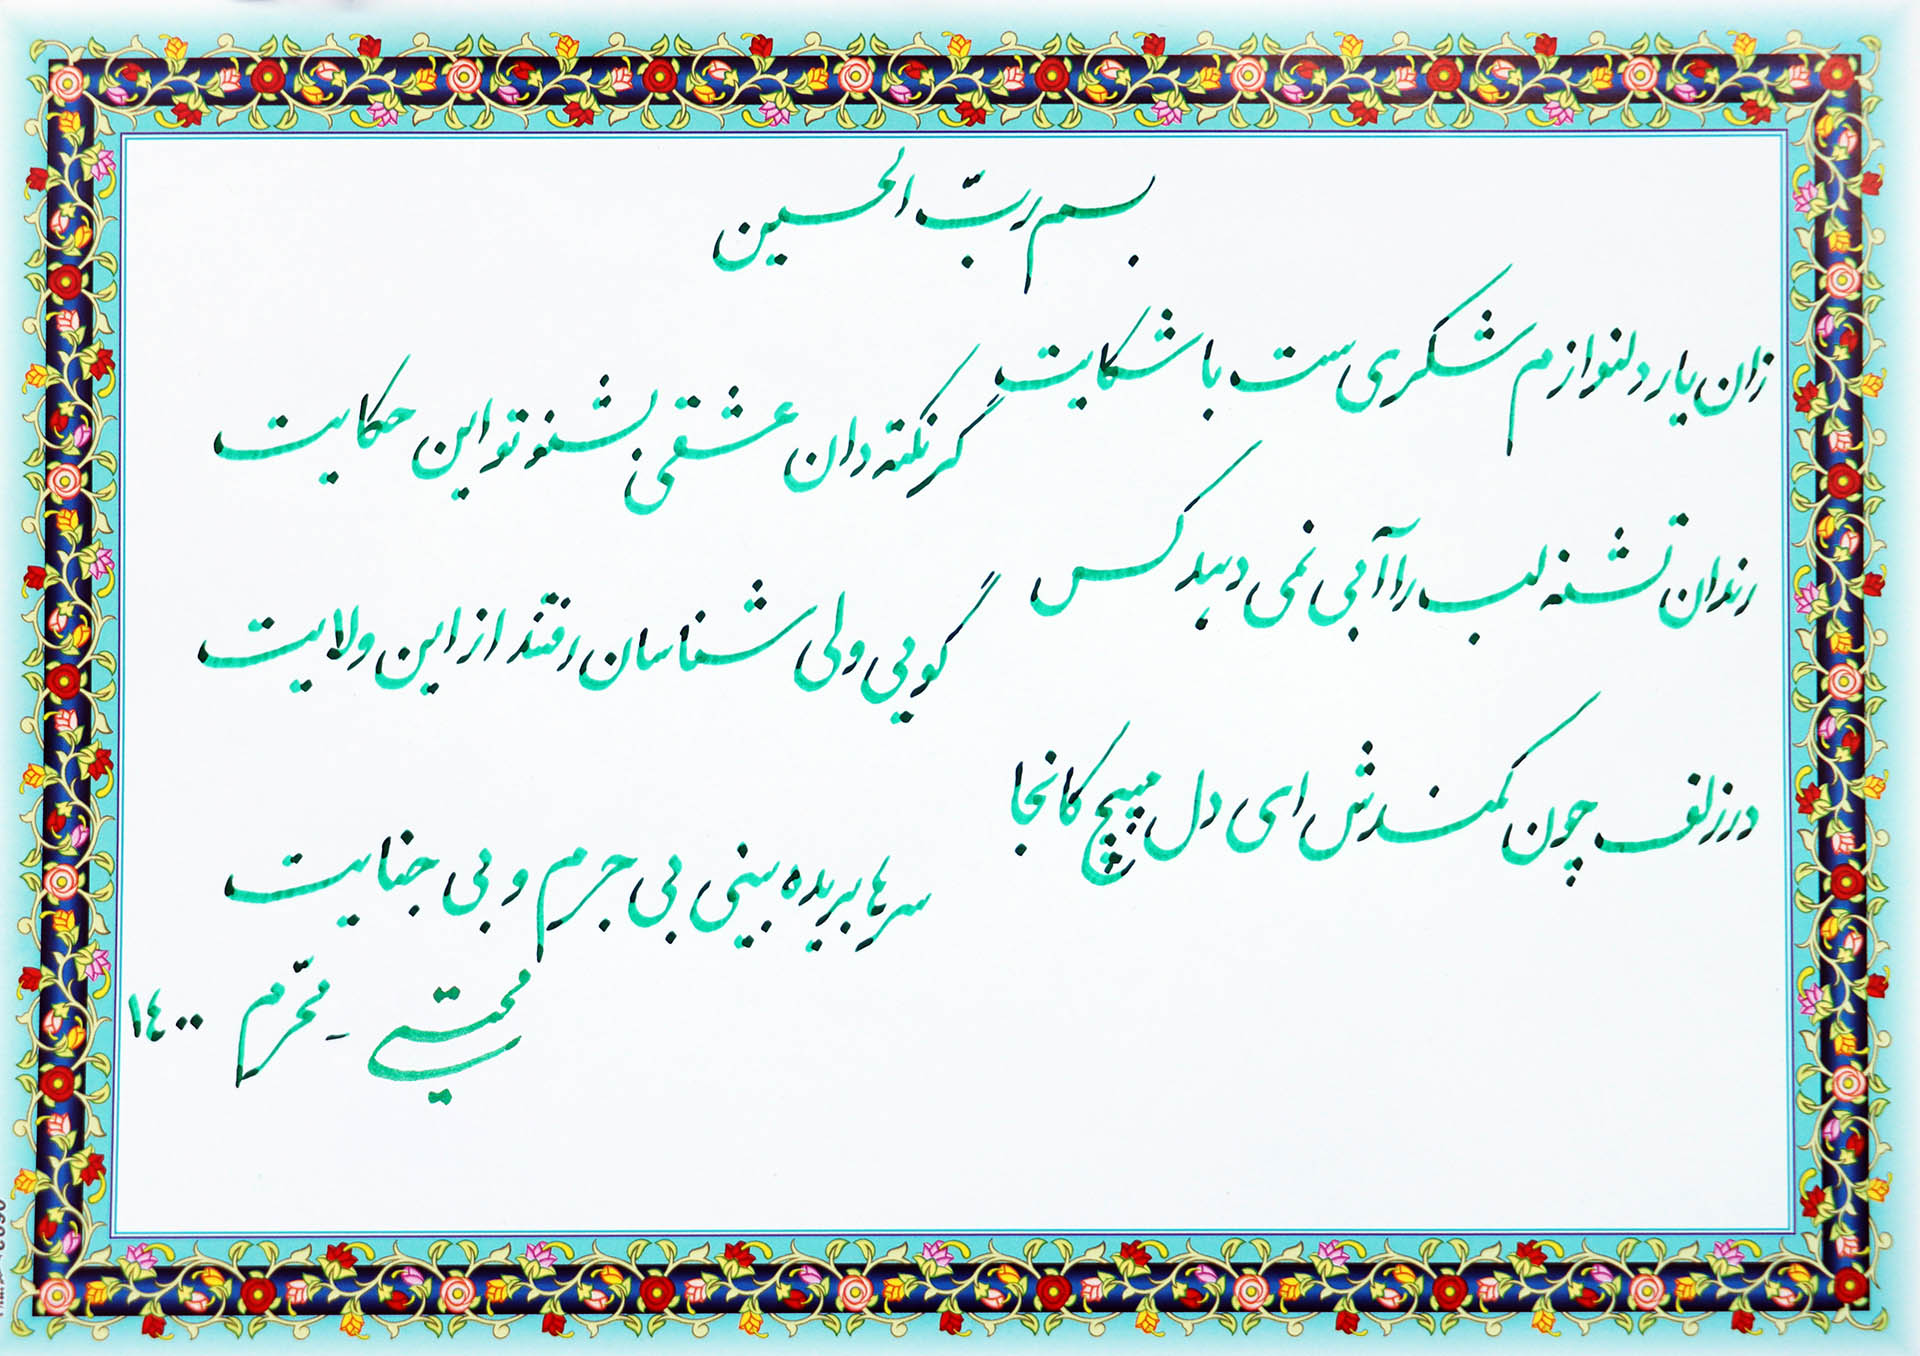 بسم ربّ الحسین
زان یار دلنوازم شکری ست با شکایت
گر نکته دان عشقی بشنو تو این حکایت
رندان تشنه لب را آبی نمی دهد کس
گویی ولی شناسان رفتند از این ولایت
در زلف چون کمندش ای دل مپیچ کانجا
سرها بریده بینی بی جرم و بی جنایت
مجتبی - محرّم ١٤٠٠